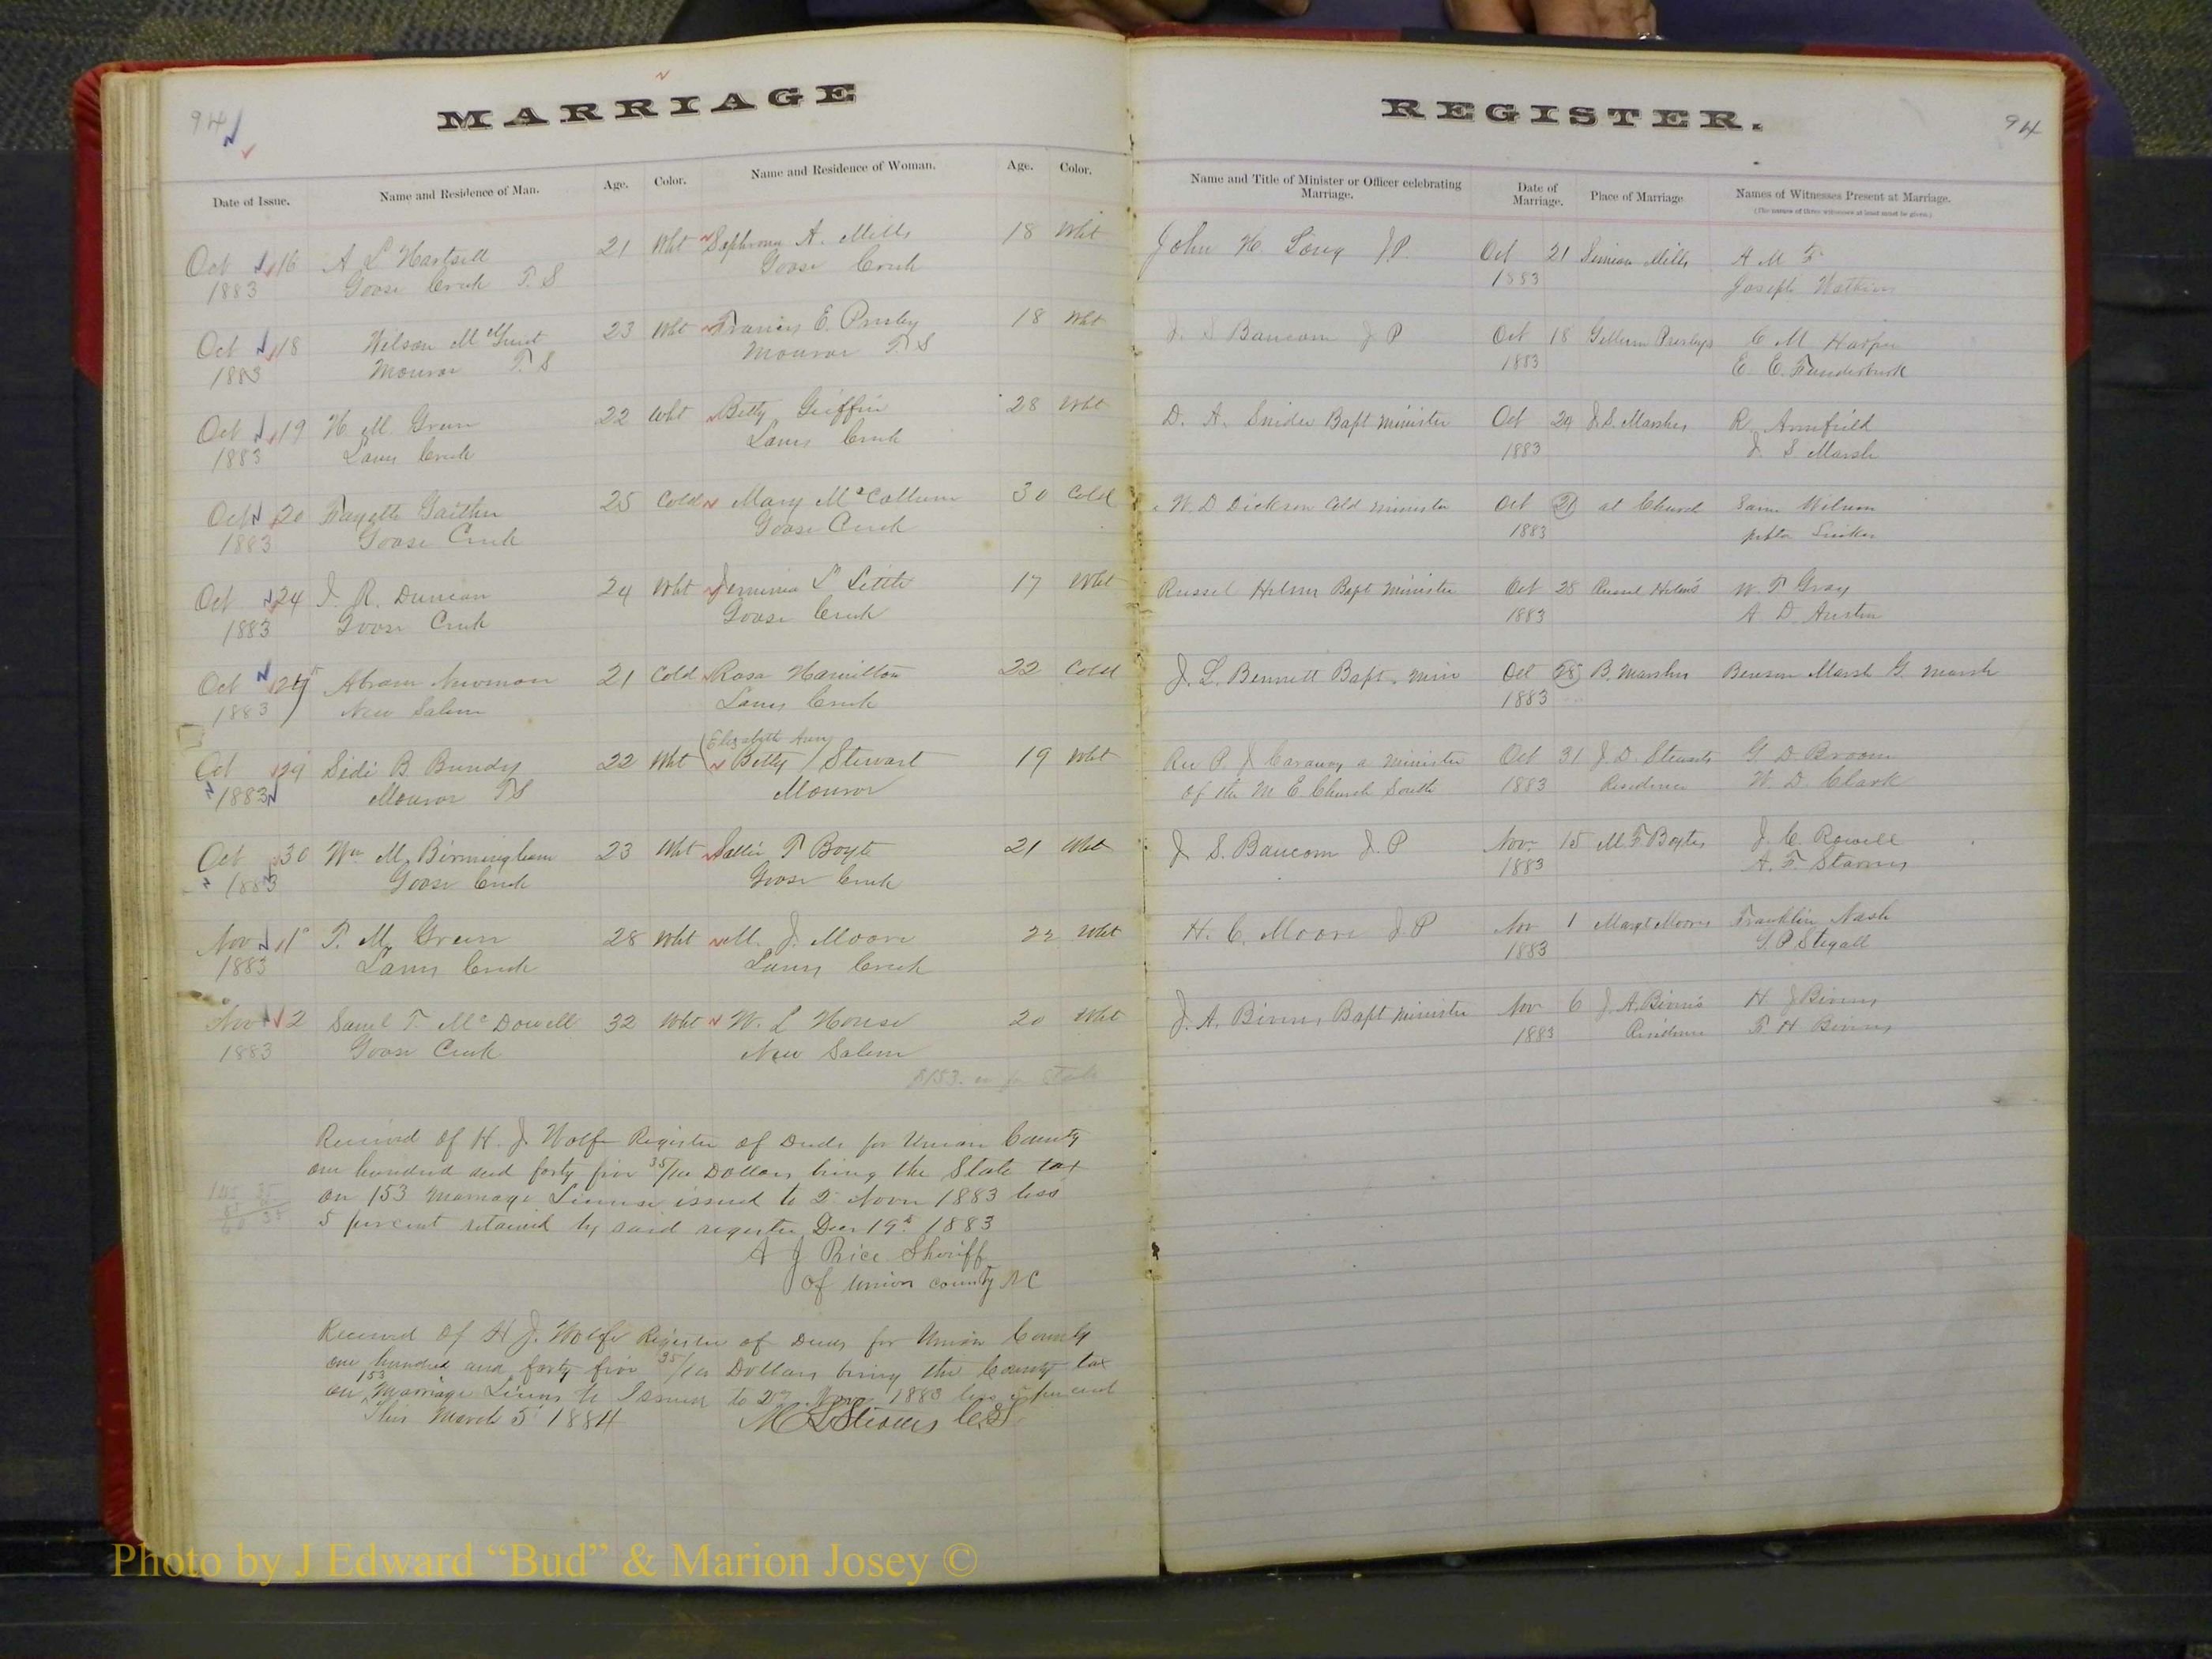 94
MARRIAGE
REGISTER.
94
Date of Issue. Name and Residence of Man. Age. Color. Name and Residence of Woman. Age. Color. Name and Title of Minister or Officer celebrating Marriage. Date of Marriage. Place of Marriage Names of Witnesses Present at Marriage.
(The names of three witnesses at least must be given.)
Oct 16 A L Hartsell 21 Wht A. Mills 18 Wht John H. Long J.P. Oct 21 Simeon Mills A M F
1883 Goose Creek T. S Goose Creek 1883 Joseph Watkins
Oct 18 Wilson M 23 Wht Francis E. Presley 18 Wht J. S Baucom J P Oct 18 Gillum Presleys C M Harper
1883 Monroe T. S Monroe T. S 1883 E. C. Funderburk
Oct 19 H. M. Green 22 Wht Betty Griffin 28 Wht D. A. Snider Bapt Minister Oct 29 J. S. Marshes R. Armfield
1883 Lanes Creek Lanes Creek 1883 J. S. Marsh
Oct 20 Fayette Gaither 25 Cold Mary McCollum 30 Cold W. D Dickson Cold minister Oct 21 at Church Sam Wilson
1883 Goose Creek Goose Creek 1883
Oct 24 J. R. Duncan 24 Wht Jemima L Little 17 Wht Russel Helms Bapt Minister Oct 28 Russel Helms W. T Gray
1883 Goose Creek Goose Creek 1883 A. D. Austin
Oct Abram Newman 21 Cold Rosa Hamilton 22 Cold J. L. Bennett Bapt. Min Oct 28 B. Marshes Benson Marsh G. Marsh
1883 New Salem Lanes Creek 1883
Elizabeth Ann
Oct 29 Sidi B Bundy 22 Wht Betty Stewart 19 Wht Rev P. J Caraway a minister Oct 31 J. D. Stewarts G. D Broom
1883 Monroe TS Monroe of the M E. Church South 1883 Residence W. D. Clark
Oct 30 Wm M. Birmingham 23 Wht Sallie T Boyte 21 Wht J. S. Baucom J. P Nov 15 M. F Boytes J. C. Rowell
1883 Goose Creek Goose Creek 1883 A. F. Starnes
Nov 1 T. M. Green 28 Wht M. J. Moore 22 Wht H. C. Moore J P Nov 1 Moores Franklin Nash
1883 Lanes Creek Lanes Creek 1883 G. P Stegall
Nov 2 Saml T. McDowell 32 Wht W. L House 20 Wht J. A. Bivins Bapt Minister Nov 6 J. A. Bivins H. J Bivins
1883 Goose Creek New Salem 1883 Residence T. H Bivins
Received of H. J. Wolfe Register of Deeds for Union County
one hundred and forty five 35/100 Dollars being the State tax
on 153 Marriage License issued to 2 Novr 1883 less
5 percent retained by said register Decr 19th 1883
A J Price Sheriff
of Union county NC
Received of H J. Wolfe Register of Deeds for Union County
one hundred and forty five 35/100 Dollars being the County tax
153
on Marriage Licens Issued to 2nd Nov 1883 less 5 per cent
This March 5 1884
Photo by J Edward “Bud” & Marion Josey ©